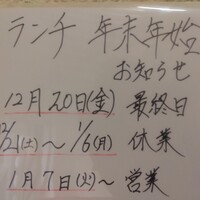 ランチ 年末年始
お知らせ
12月20日(金) 最終日
12/21(土)〜 1/6(月) 休業
1月7日(火)〜 営業